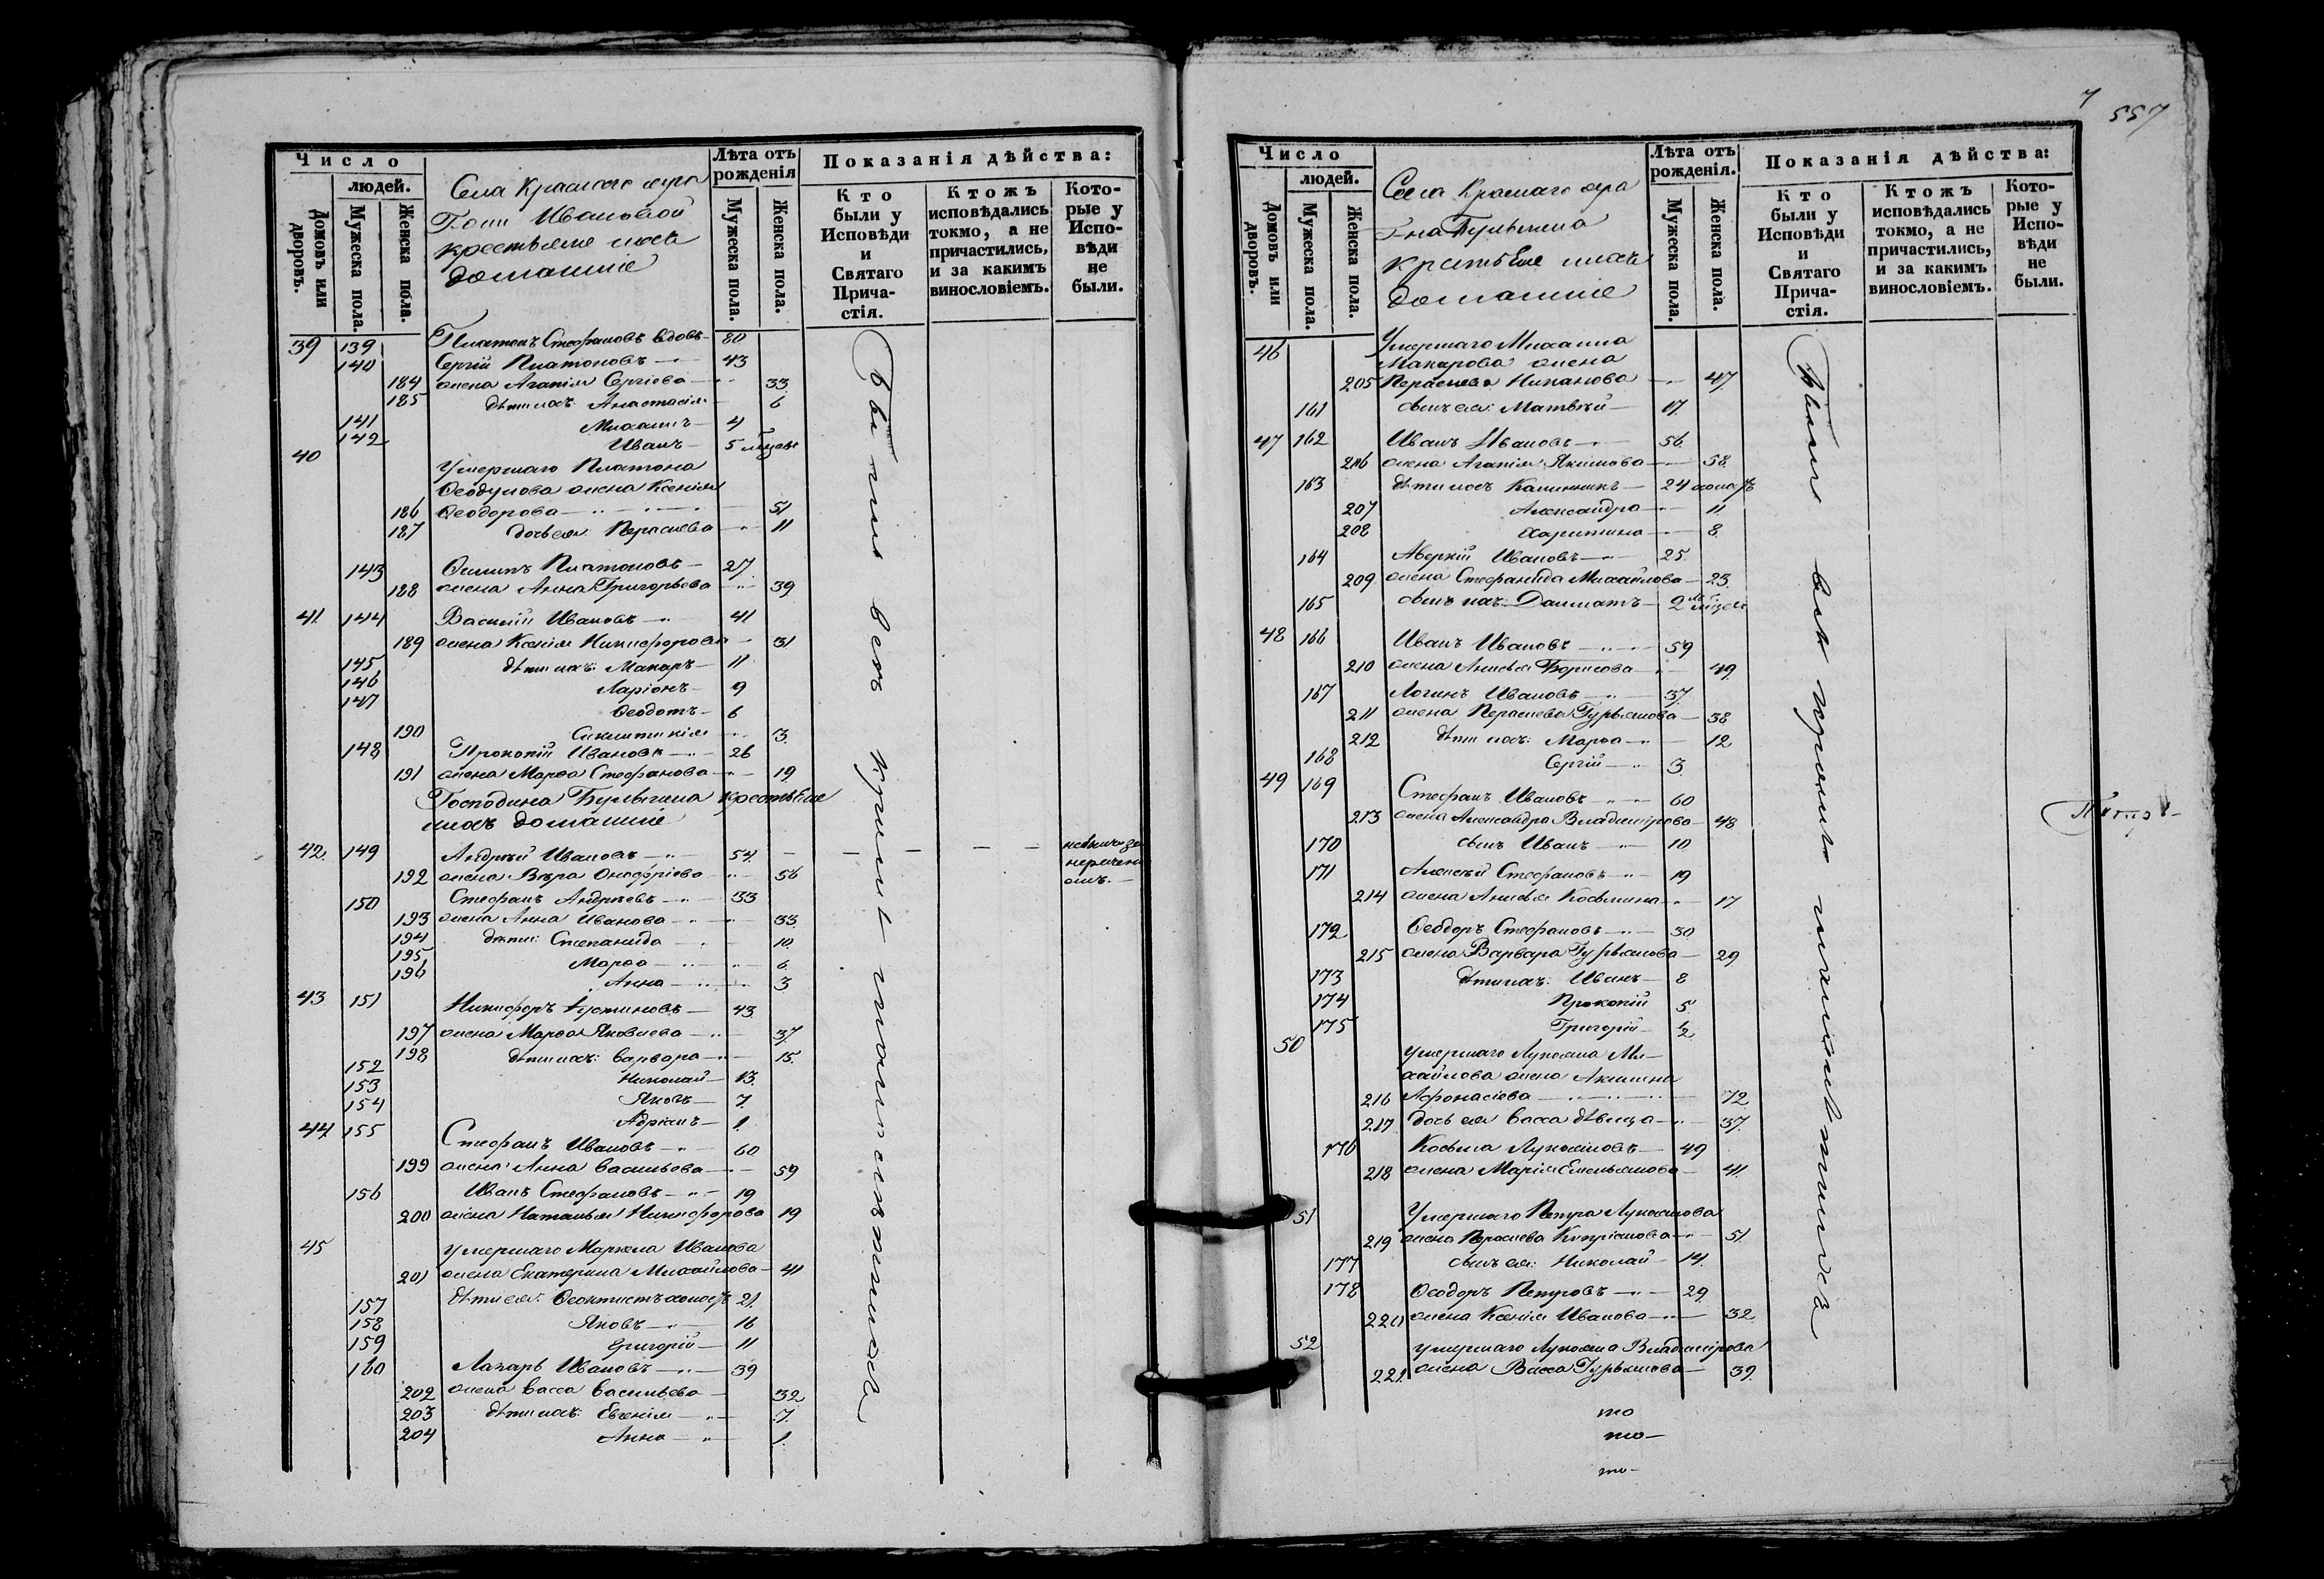 Число
людей.
Домовъ или дворовъ.
Мужеска пола.
Женска пола.
Села Краснаго
Г-жи Ивановой
крестьяне ихъ
домашніе
Лѣта отъ рожденія
Мужеска пола.
Женска пола.
Показанія дѣйства:
Кто были у Исповѣди и Святаго Причастія.
Ктожъ исповѣдались токмо, а не причастились, и за какимъ винословіемъ.
Которые у Исповѣди не были.
39 139 Платонъ Стефановъ вдовъ 80
140 Сергій Платоновъ 43
184 жена Агапія Сергіева 33
185 дѣти ихъ: Анастасія 6
141 Михаилъ 4
142 Иванъ 5
40 Умершаго Платона
Ѳеодулова жена Ксенія
186 Ѳеодорова 51
187 дочь ея: Параскева 11
143 Осипъ Платоновъ 27
188 жена Анна Григорьева 39
41 144 Василій Ивановъ 41
189 жена Ксенія Никифорова 31
145 дѣти ихъ: Макаръ 11
146 Ларіонъ 9
147 Ѳеодотъ 6
190 Синклитикія 3
148 Прокопій Ивановъ 26
191 жена Марѳа Стефанова 19
Господина крестьяне
ихъ домашніе
42 149 Андрей Ивановъ 54
192 жена Вѣра Онофріева 56
150 Стефанъ Андреевъ 33
193 жена Анна Иванова 33
194 дѣти: Степанида 10
195 Марѳа 6
196 Анна 3
43 151 Никифоръ Іустиновъ 43
197 жена Марѳа Яковлева 37
198 дѣти ихъ: Варвара 15
152 Николай 13
153 Яковъ 7
154 Адріанъ 1
44 155 Стефанъ Ивановъ 60
199 жена Анна Васильева 59
156 Иванъ Стефановъ 19
200 жена Наталья Никифорова 19
45 Умершаго Маркела Иванова
201 жена Екатерина Михайлова 41
157 дѣти ея: Ѳеоктистъ холостъ 21
158 Яковъ 16
159 Григорій 11
160 Лазарь Ивановъ 39
202 жена Васса Васильева 32
203 дѣти ихъ: Евгенія 7
204 Анна 1
Были всѣ кромѣ малолѣтнихъ
7 557
Число
людей.
Домовъ или дворовъ.
Мужеска пола.
Женска пола.
Села Краснаго
Г-на
крестьяне ихъ
домашніе
Лѣта отъ рожденія.
Мужеска пола.
Женска пола.
Показанія дѣйства:
Кто были у Исповѣди и Святаго Причастія.
Ктожъ исповѣдались токмо, а не причастились, и за какимъ винословіемъ.
Которые у Исповѣди не были.
46 Умершаго Михаила
Макарова жена
205 Параскева 47
161 сынъ ея: Матвѣй 17
47 162 Иванъ Ивановъ 56
206 жена Агапія Якимова 58
163 дѣти ихъ Каллиникъ 24 холостъ
207 Александра 11
208 Харитина 8
164 Аверкій Ивановъ 25
209 жена Стефанида Михайлова 23
165 сынъ ихъ: Далматъ 2
48 166 Иванъ Ивановъ 59
210 жена Анисья Борисова 49
167 Логинъ Ивановъ 37
211 жена Параскева Гурьянова 38
212 дѣти ихъ: Марѳа 12
168 Сергій 3
49 169 Стефанъ Ивановъ 60
213 жена Александра Владимірова 48
170 сынъ Иванъ 10
171 Алексѣй Стефановъ 19
214 жена Анисья Косьмина 17
172 Ѳеодоръ Стефановъ 30
215 жена Варвара Гурьянова 29
173 дѣти ихъ: Иванъ 8
174 Прокопій 5
175 Григорій ½
50 Умершаго Лукьяна Ми-
хайлова жена Акилина
216 Афонасіева 72
217 дочь ея Васса дѣвица 37
176 Косьма Лукьяновъ 49
218 жена Марія Емельянова 41
51 Умершаго Петра Лукьянова
219 жена Параскева Кипріянова 51
177 сынъ ея: Николай 14
178 Ѳеодоръ Петровъ 29
220 жена Ксенія Иванова 32
52 умершаго Лукьяна Владимірова
221 жена Васса Гурьянова 39
Были всѣ кромѣ малолѣтнихъ